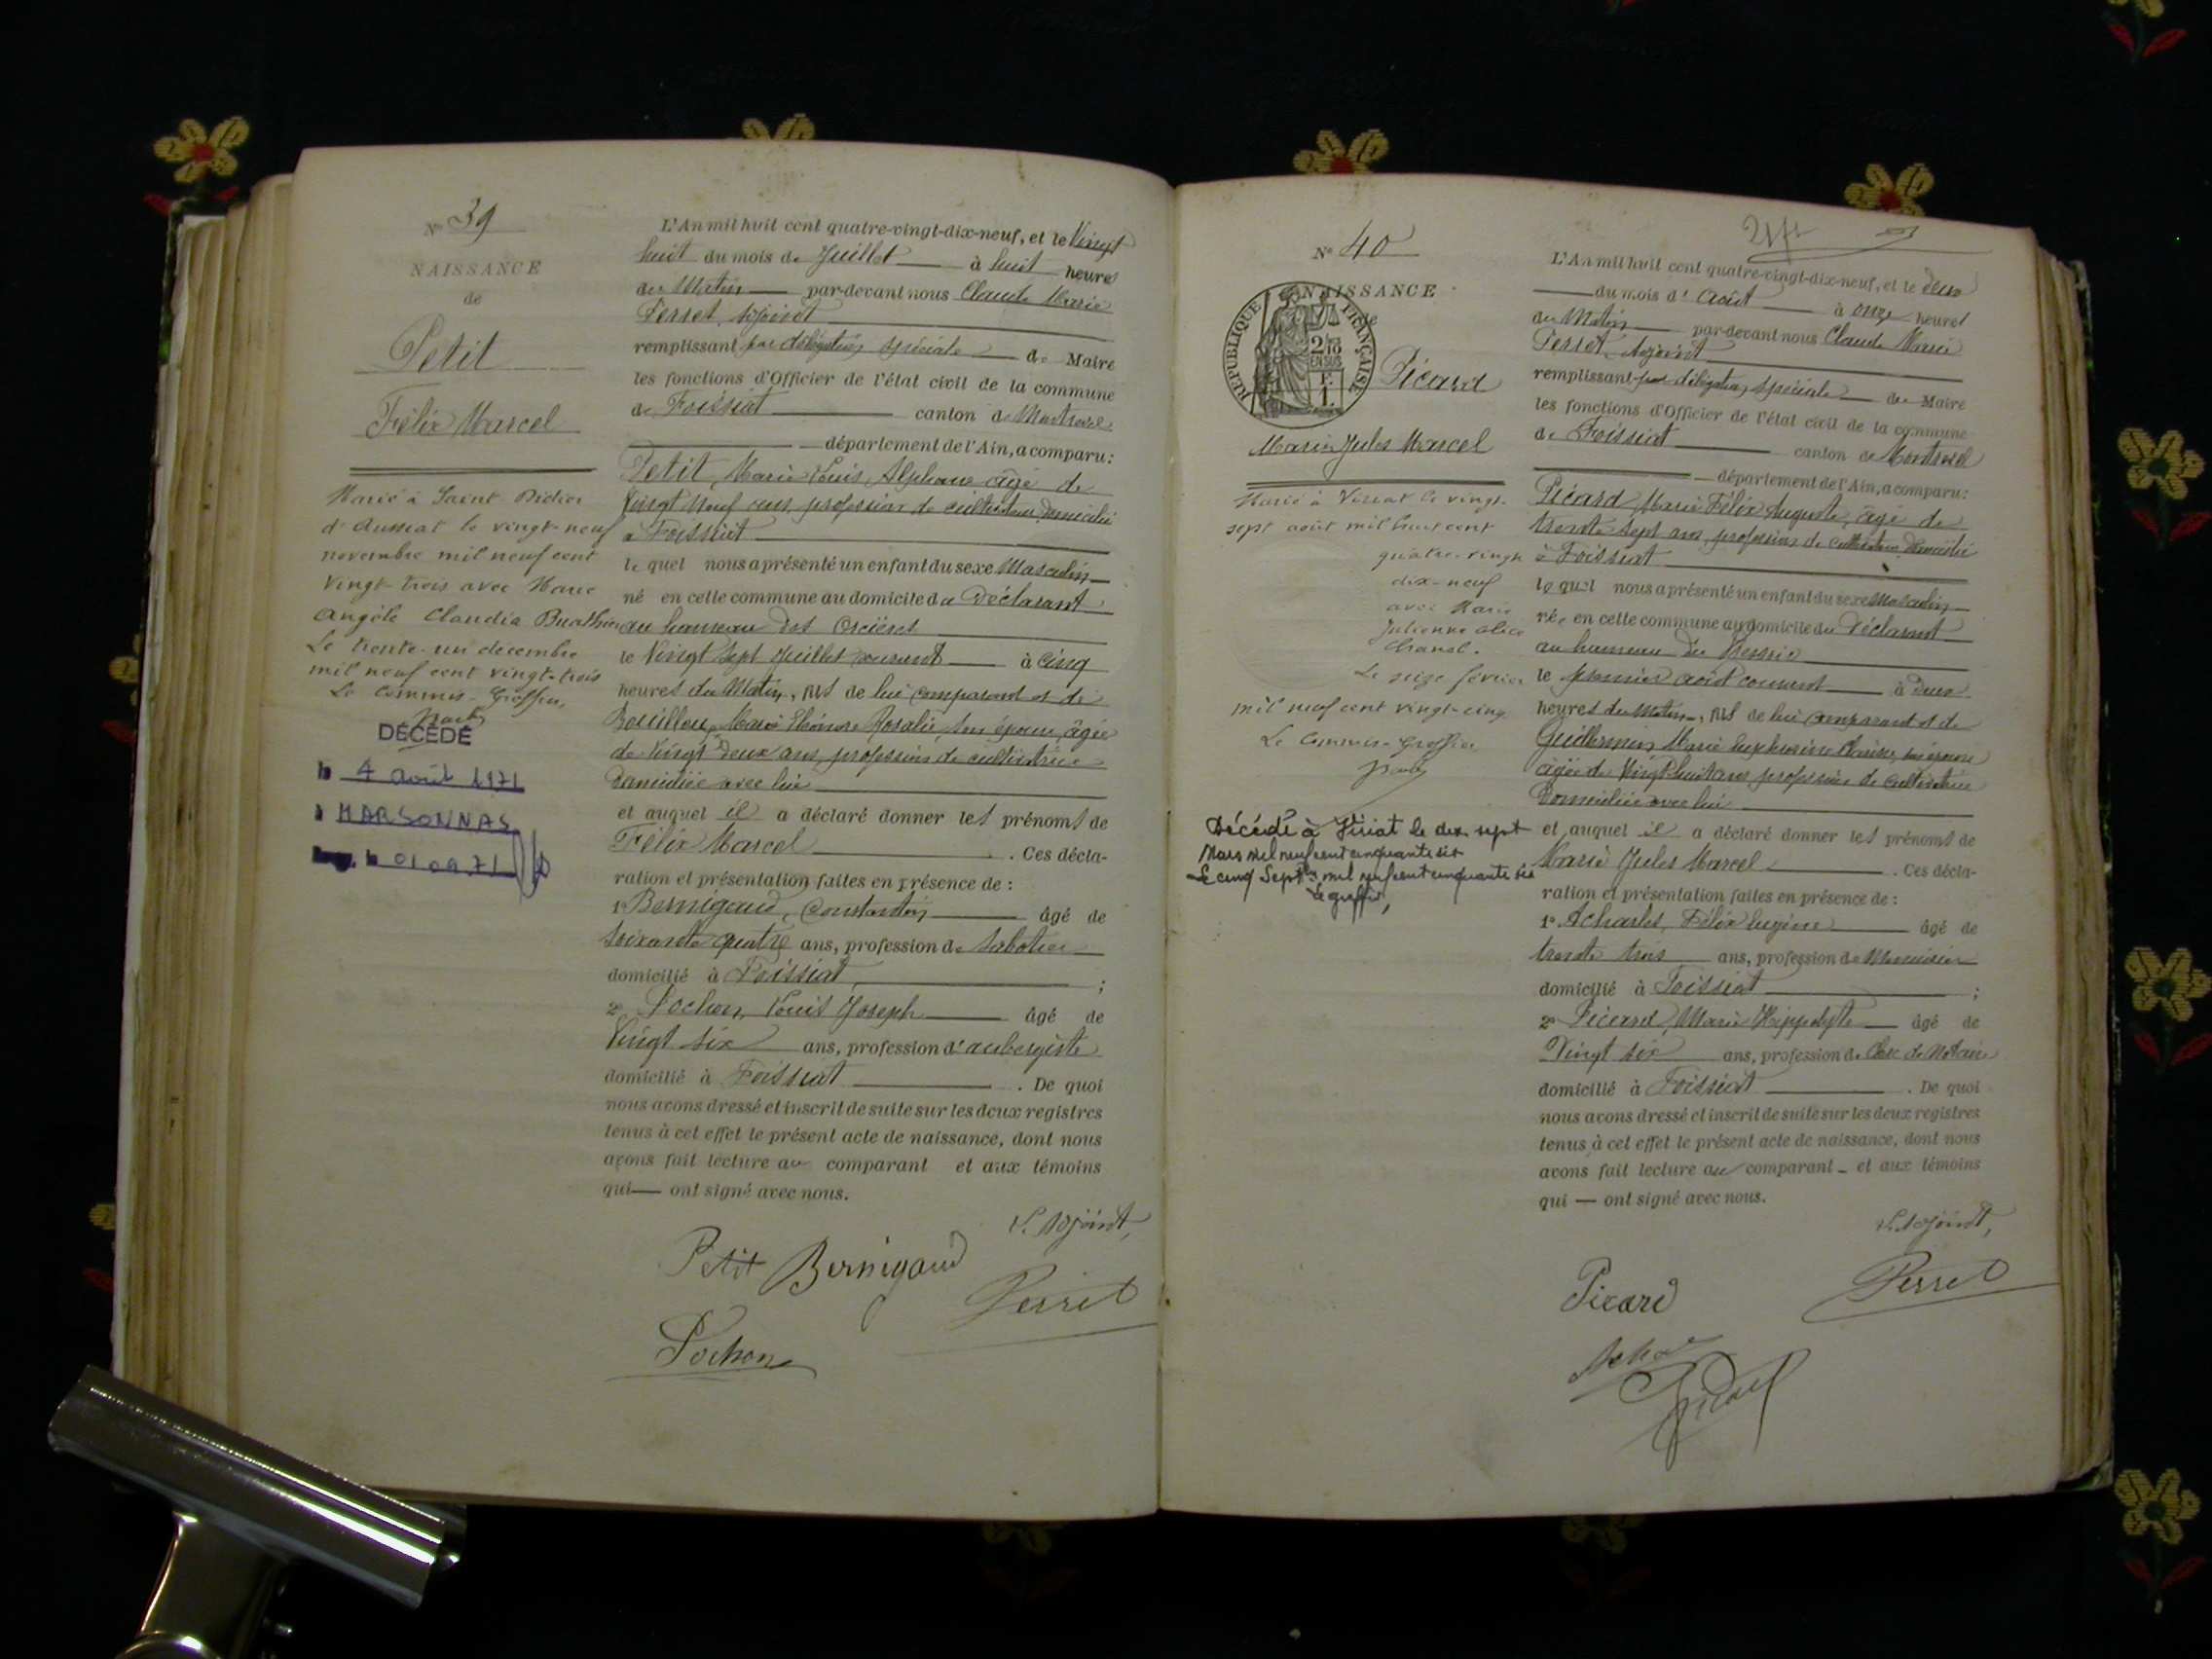 N° 39
NAISSANCE
de
Petit
Félix Marcel
Marié à Saint Didier
d'Aussiat le vingt-neuf
novembre mil neuf cent
vingt-trois avec Marie
Angèle Claudia Buathier
Le trente-un décembre
mil neuf cent vingt-trois
Le Commis-Greffier,
DÉCÉDÉ
le 4 août 1971
à MARSONNAS
le 01.09.71
L'An mil huit cent quatre-vingt-dix-neuf, et le Vingt
huit du mois de Juillet à huit heures
du Matin par-devant nous Claude Marie
Perret, Adjoint
remplissant par délégation spéciale de Maire
les fonctions d'Officier de l'état civil de la commune
de Foissiat canton de Montrevel
département de l'Ain, a comparu:
Petit, Marie Louis Alphonse âgé de
Vingt Neuf ans, profession de cultivateur, domicilié
à Foissiat
le quel nous a présenté un enfant du sexe Masculin
né en cette commune au domicile du Déclarant
au hameau des
le Vingt Sept Juillet courant à Cinq
heures du Matin, fils de lui comparant et de
Bouilloux, Marie Eléonore Rosalie, son épouse, âgée
de Vingt Deux ans, profession de cultivatrice
domiciliée avec lui
et auquel il a déclaré donner les prénoms de
Félix Marcel . Ces décla-
ration et présentation faites en présence de :
1° Bernigaud, Constantin âgé de
Soixante quatre ans, profession de Sabotier
domicilié à Foissiat ;
2° Pochon, Louis Joseph âgé de
Vingt six ans, profession d'aubergiste
domicilié à Foissiat . De quoi
nous avons dressé et inscrit de suite sur les deux registres
tenus à cet effet le présent acte de naissance, dont nous
avons fait lecture au comparant et aux témoins
qui — ont signé avec nous.
L'Adjoint,
Petit Bernigaud
Perret
Pochon
N° 40
NAISSANCE
de
REPUBLIQUE FRANÇAISE
2/10
EN SUS
F.
1.
Picard
Marie Jules Marcel
Marié à Viriat le vingt-
sept août mil huit cent
quatre-vingt
dix-neuf
avec Marie
Julienne Alice
Chanel.
Le seize février
mil neuf cent vingt-cinq
Le Commis-Greffier
Décédé à Viriat le dix sept
Mars mil neuf cent cinquante six
Le cinq Septbre mil neuf cent cinquante six
Le greffier,
L'An mil huit cent quatre-vingt-dix-neuf, et le deux
du mois d'Août à onze heures
du Matin par-devant nous Claude Marie
Perret, Adjoint
remplissant par délégation spéciale de Maire
les fonctions d'Officier de l'état civil de la commune
de Foissiat canton de Montrevel
département de l'Ain, a comparu:
Picard, Marie Félix Auguste, âgé de
trente sept ans, profession de cultivateur, domicilié
à Foissiat
le quel nous a présenté un enfant du sexe Masculin
né en cette commune au domicile du Déclarant
au hameau du
le premier août courant à deux
heures du Matin, fils de lui comparant et de
Guillermin, Marie Euphrosine, son épouse
âgée de Vingt huit ans, profession de cultivatrice
domiciliée avec lui
et auquel il a déclaré donner les prénoms de
Marie Jules Marcel . Ces décla-
ration et présentation faites en présence de :
1° Félix Eugène âgé de
trente trois ans, profession de Menuisier
domicilié à Foissiat ;
2° Picard, Marie Hippolyte âgé de
Vingt six ans, profession de Clerc de Notaire
domicilié à Foissiat . De quoi
nous avons dressé et inscrit de suite sur les deux registres
tenus à cet effet le présent acte de naissance, dont nous
avons fait lecture au comparant et aux témoins
qui — ont signé avec nous.
L'Adjoint,
Picard
Perret
Picard